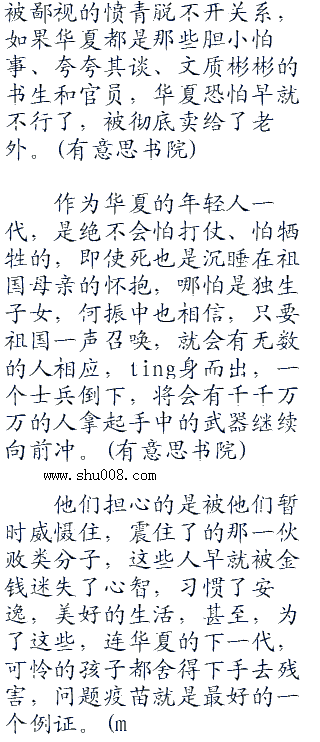 被鄙视的愤青脱不开关系，
如果华夏都是那些胆小怕
事、夸夸其谈、文质彬彬的
书生和官员，华夏恐怕早就
不行了，被彻底卖给了老
外。(有意思书院)
作为华夏的年轻人一
代，是绝不会怕打仗、怕牺
牲的，即使死也是沉睡在祖
国母亲的怀抱，哪怕是独生
子女，何振中也相信，只要
祖国一声召唤，就会有无数
的人相应，ting身而出，一
个士兵倒下，将会有千千万
万的人拿起手中的武器继续
向前冲。(有意思书院)
www.shu008.com
他们担心的是被他们暂
时威慑住，震住了的那一伙
败类分子，这些人早就被金
钱迷失了心智，习惯了安
逸，美好的生活，甚至，为
了这些，连华夏的下一代，
可怜的孩子都舍得下手去残
害，问题疫苗就是最好的一
个例证。(m